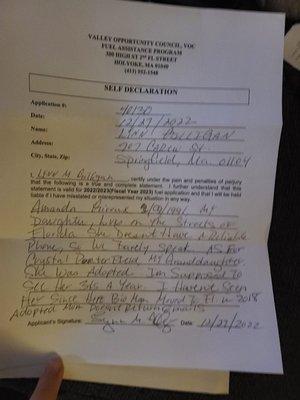 VALLEY OPPORTUNITY COUNCIL, VOC
FUEL ASSISTANCE PROGRAM
300 HIGH ST 2ND FL STREET
HOLYOKE, MA 01040
(413) 552-1548
SELF DECLARATION
Application #:
Date: 12/27/2022
Name: Lynn
Address: St
City, State, Zip: Springfield, Ma.
I, Lynn M , certify under the pain and penalties of perjury
that the following is a true and complete statement. I further understand that this
statement is valid for 2022/2023(Fiscal Year 2023) fuel application and that I will be held
liable if I have misstated or misrepresented my situation in any way.
Amanda My
Daughter, Lives on the Streets of
Florida. She Doesn't Have A Reliable
Phone, So We Rarely Speak. As For
Crystal My Granddaughter,
She Was Adopted. Im Supposed To
See Her 3x's A Year. I Havent Seen
Her Since Her Bio Mom Moved To Fl in 2018
Adopted Mom Doesnt Return Emails
Applicant's Signature: Date: 12/27/2022